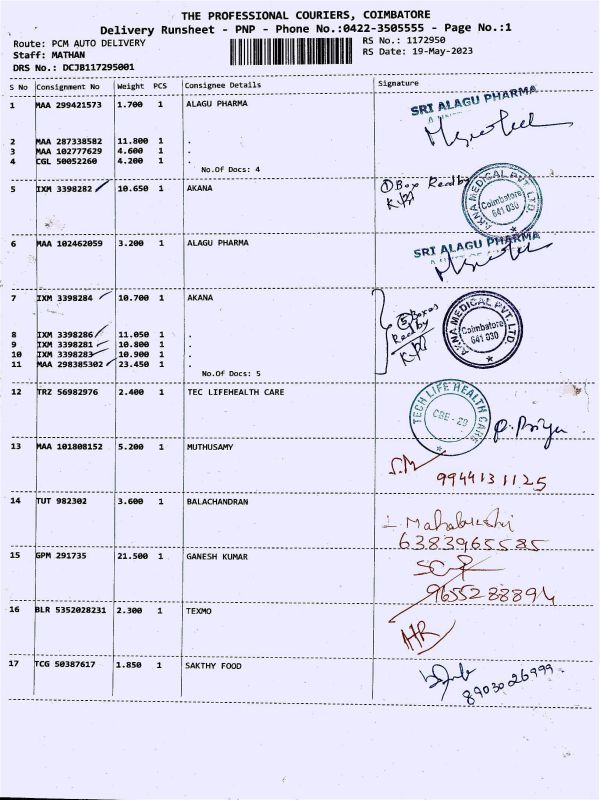 THE PROFESSIONAL COURIERS, COIMBATORE
Delivery Runsheet - PNP - Phone No.:0422-3505555 - Page No.:1
Route: PCM AUTO DELIVERY
RS No.: 1172950
Staff: MATHAN
RS Date: 19-May-2023
DRS No.: DCJB117295001
S No Consignment No Weight PCS Consignee Details Signature
1 MAA 299421573 1.700 1 ALAGU PHARMA
SRI ALAGU PHARMA
2 MAA 287338582 11.800 1 .
3 MAA 102777629 4.600 1 .
4 CGL 50052260 4.200 1 .
No.Of Docs: 4
5 IXM 3398282 10.650 1 AKANA
① Box Recd by
AKNA MEDICAL PVT. LTD.
Coimbatore
641 030
6 MAA 102462059 3.200 1 ALAGU PHARMA
SRI ALAGU PHARMA
7 IXM 3398284 10.700 1 AKANA
⑤ Boxes
Recd by
AKNA MEDICAL PVT. LTD.
Coimbatore
641 030
8 IXM 3398286 11.050 1 .
9 IXM 3398281 10.800 1 .
10 IXM 3398283 10.900 1 .
11 MAA 298385302 23.450 1 .
No.Of Docs: 5
12 TRZ 56982976 2.400 1 TEC LIFEHEALTH CARE
TECH LIFE HEALTH CARE
CBE - 29
P. Priya
13 MAA 101808152 5.200 1 MUTHUSAMY
S.M
9944131125
14 TUT 982302 3.600 1 BALACHANDRAN
6383965585
15 GPM 291735 21.500 1 GANESH KUMAR
9655288894
16 BLR 5352028231 2.300 1 TEXMO
17 TCG 50387617 1.850 1 SAKTHY FOOD
8903026999